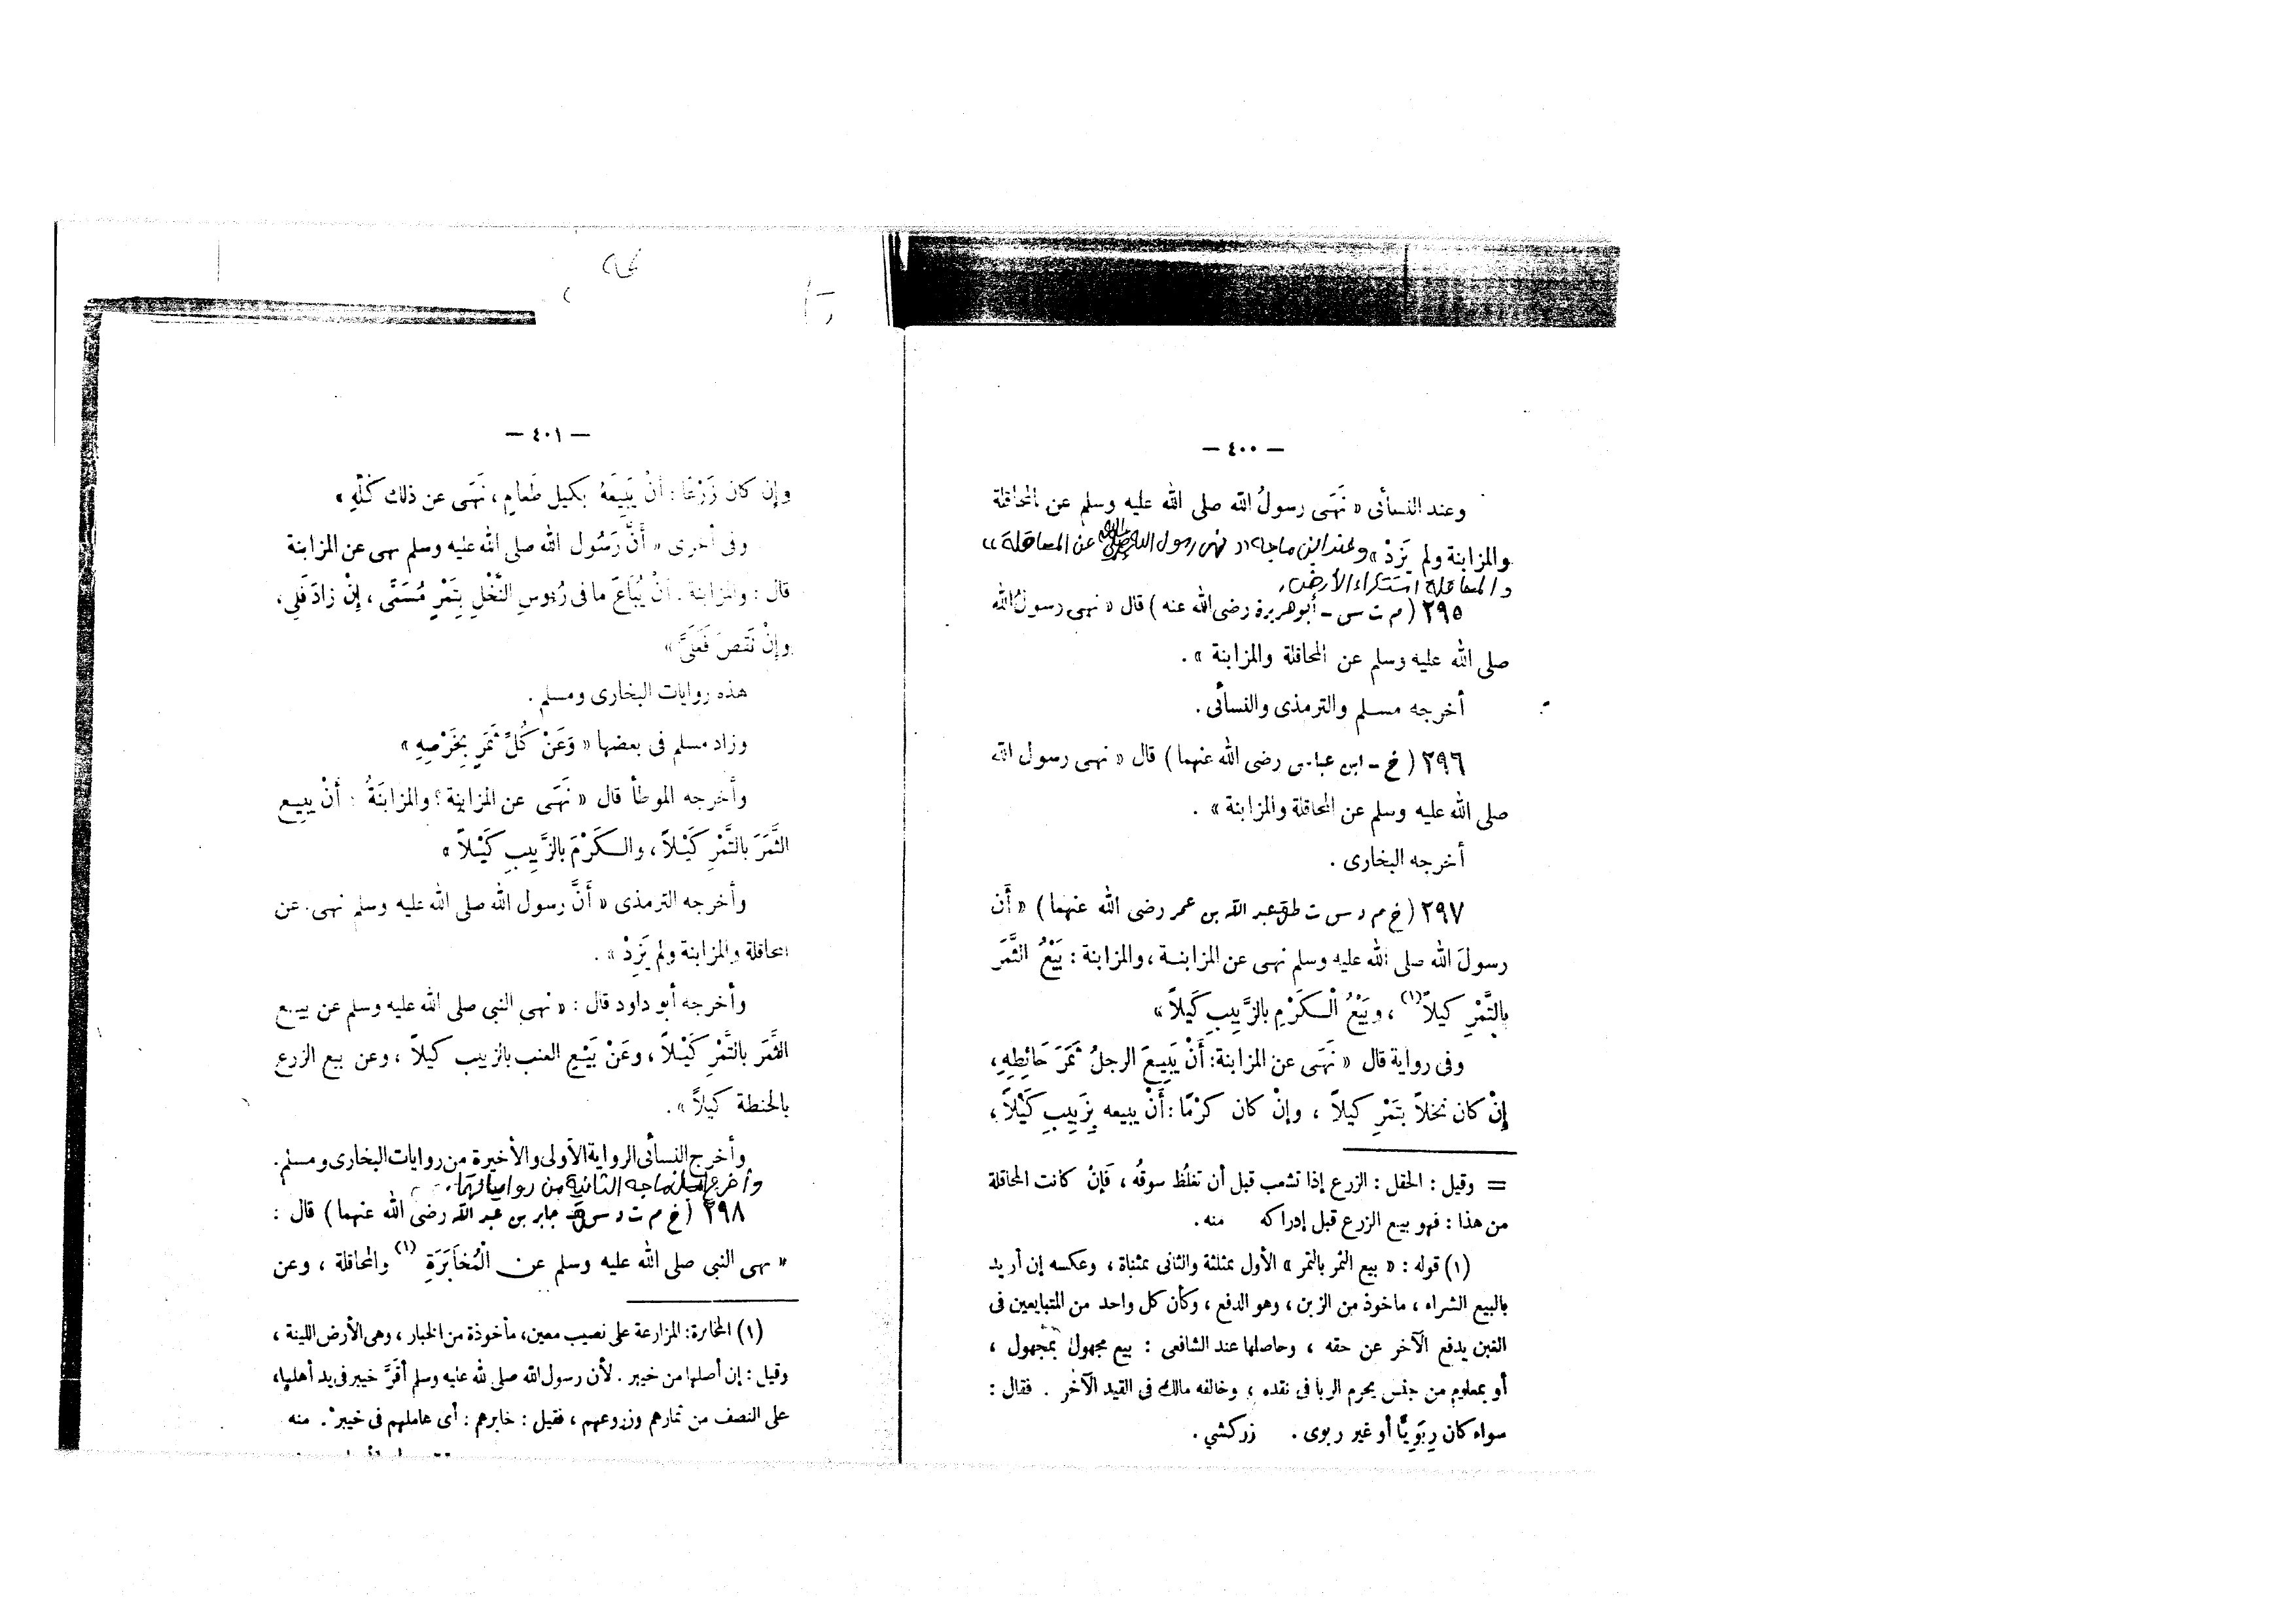 — ٤٠٠ —
وعند النسأئى « نَهَى رسولُ الله صلى الله عليه وسلم عن المحاقلة
والمزابنة ولم يَزِدْ » وعند ابن ماجه « نهى رسول الله ﷺ عن المحاقلة »
والمحاقلة استكراء الأرض.
٢٩٥ ( م ت س – أبو هريرة رضى الله عنه ) قال « نهى رسولُ الله
صلى الله عليه وسلم عن المحاقلة والمزابنة » .
أخرجه مسلم والترمذى والنسأئى .
٢٩٦ ( خ – ابن عباس رضى الله عنهما ) قال « نهى رسول الله
صلى الله عليه وسلم عن المحاقلة والمزابنة » .
أخرجه البخارى .
٢٩٧ ( خ م د س ت ط عبد الله بن عمر رضى الله عنهما ) « أَن
رسولَ الله صلى الله عليه وسلم نهى عن المزابنة ، والمزابنة : بَيْعُ الثَّمَرَ
بالتَّمْرِ كيلاً (١) ، وبَيْعُ الْكَرْمِ بالزَّبِيبِ كَيلاً »
وفى رواية قال « نَهَى عن المزابنة : أَنْ يَبِيعَ الرجلُ ثَمَرَ حَائِطِهِ ،
إِنْ كان نخلاً بتَمْرٍ كيلاً ، وإنْ كان كَرْمًا : أَنْ يبيعه بِزَبِيبٍ كَيْلاً ،
= وقيل : الحقل : الزرع إذا تشعب قبل أن تغلُظ سوقُه ، فَإنْ كانت المحاقلة
من هذا : فهو بيع الزرع قبل إدراكه منه .
(١) قوله : « بيع الثمر بالتمر » الأول بمثلثة والثانى بمثناة ، وعكسه إن أريد
بالبيع الشراء ، مأخوذ من الزبن ، وهو الدفع ، وكأن كل واحد من المتبايعين فى
الغبن يدفع الآخر عن حقه ، وحاصلها عند الشافعى : بيع مجهول بمجهول ،
أو بمعلوم من جنس يحرم الربا فى نقده ، وخالفه مالك فى القيد الآخر . فقال :
سواء كان رِبَوِيًّا أو غير ربوى . زركشي .
— ٤٠١ —
وإن كان زَرْعًا : أَنْ يَبِيعَهُ بكيل طَعامٍ ، نَهَى عن ذلك كُلِّهِ »
وفى أخرى « أَنَّ رَسُول الله صلى الله عليه وسلم نهى عن المزابنة
قال : والمزابنة . أنْ يُبَاعَ ما فى رُءوسِ النَّخْلِ بِتَمْرٍ مُسَمًّى ، إِنْ زادَ فَلِى ،
وإنْ نَقصَ فَعَلَىَّ »
هذه روايات البخارى ومسلم .
وزاد مسلم فى بعضها « وَعَنْ كُلِّ ثَمَرٍ بِخَرْصِهِ »
وأخرجه الموطأ قال « نَهَى عن المزابنة ؟ والمزابَنَةُ : أَنْ يبيع
الثَّمَرَ بالتَّمْرِ كَيْلاً ، والكَرْمَ بالزَّبِيبِ كَيْلاً »
وأخرجه الترمذى « أَنَّ رسول الله صلى الله عليه وسلم نهى عن
المحاقلة والمزابنة ولم يَزِدْ » .
وأخرجه أبو داود قال : « نهى النبى صلى الله عليه وسلم عن بيع
الثَّمَرَ بالتَّمْرِ كَيْلاً ، وعَنْ بَيْعِ العنب بالزبيب كيلاً ، وعن بيع الزرع
بالحنطة كيلاً » .
وأخرج النسأئى الرواية الأولى والأخيرة من روايات البخارى ومسلم .
وأخرج ابن ماجه الثانية من رواياتهما .
٢٩٨ ( خ م ت د س جابر بن عبد الله رضى الله عنهما ) قال :
« نهى النبى صلى الله عليه وسلم عن الْمُخَابَرَةِ (١) والمحاقلة ، وعن
(١) المخابرة : المزارعة على نصيب معين ، مأخوذة من الخبار ، وهى الأرض اللينة ،
وقيل : إن أصلها من خيبر . لأن رسول الله صلى الله عليه وسلم أقَرَّ خيبر فى يد أهلها ،
على النصف من ثمارهم وزروعهم ، فقيل : خابرهم : أى عاملهم فى خيبر . منه